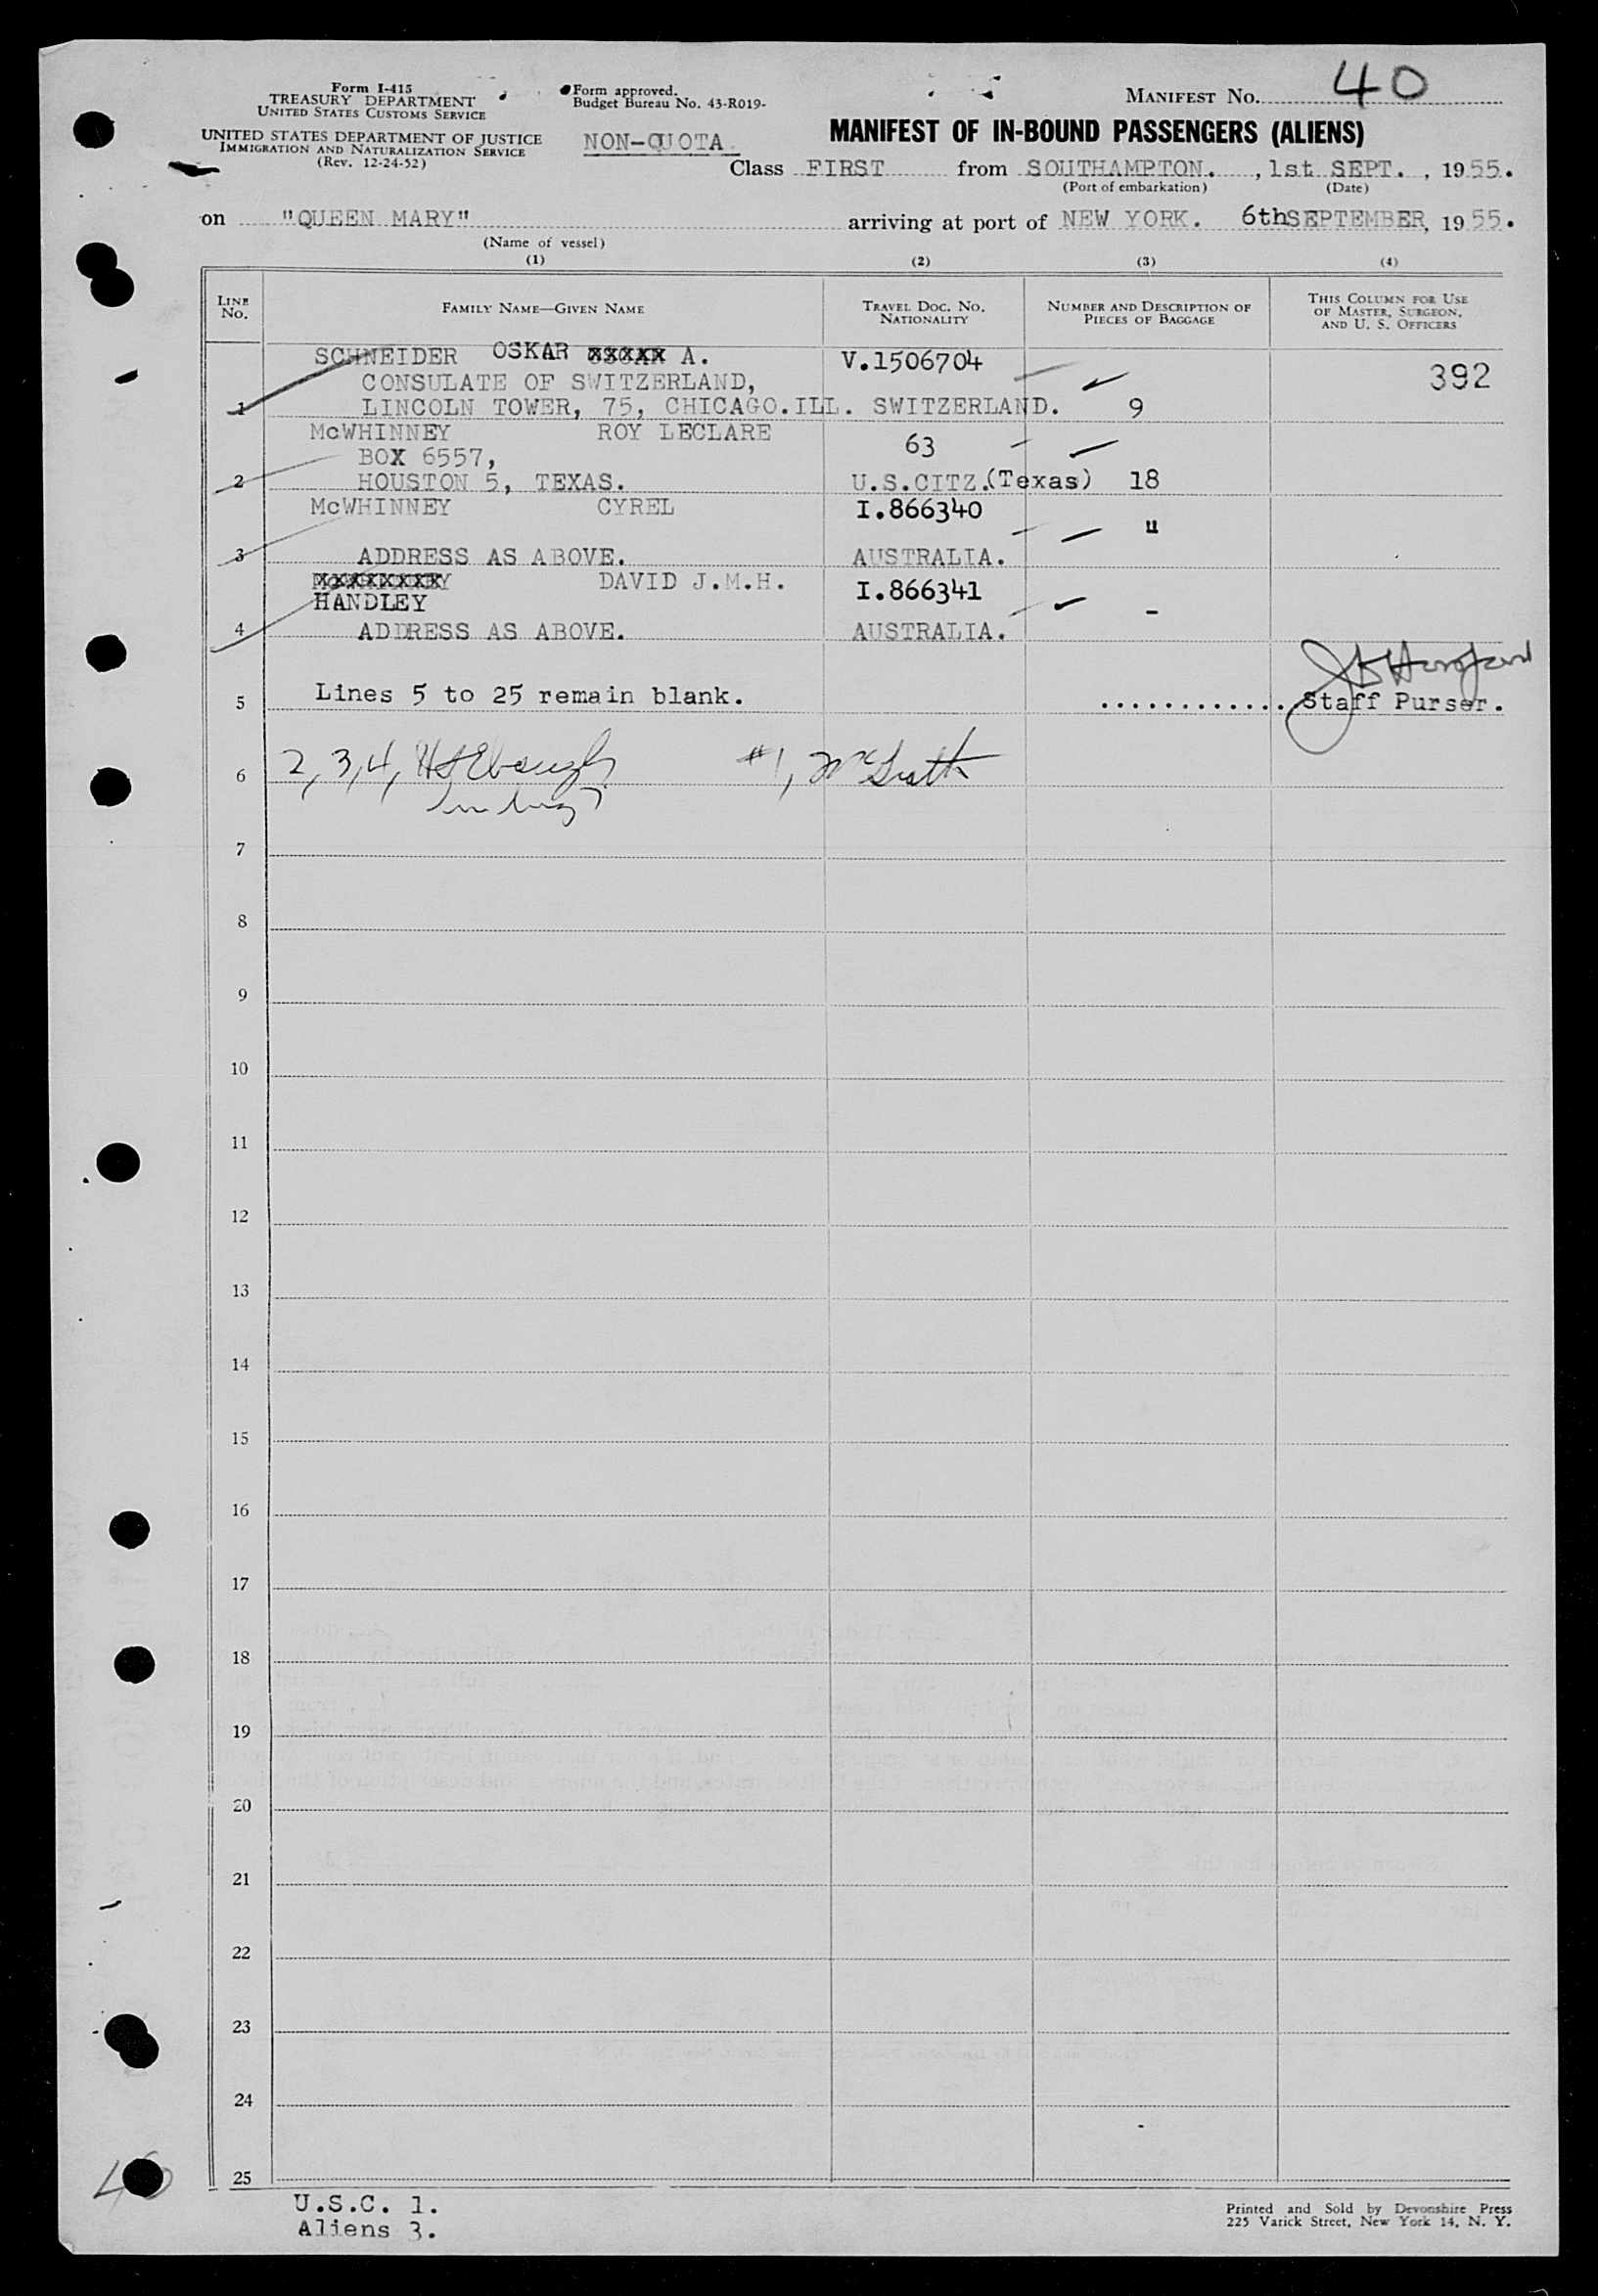 Form I-415
TREASURY DEPARTMENT
UNITED STATES CUSTOMS SERVICE
UNITED STATES DEPARTMENT OF JUSTICE
IMMIGRATION AND NATURALIZATION SERVICE
(Rev. 12-24-52)
Form approved.
Budget Bureau No. 43-R019-
NON-QUOTA.
MANIFEST NO. 40
MANIFEST OF IN-BOUND PASSENGERS (ALIENS)
Class FIRST from SOUTHAMPTON. , 1st SEPT. , 1955.
(Port of embarkation) (Date)
on "QUEEN MARY" arriving at port of NEW YORK. 6th SEPTEMBER, 1955.
(Name of vessel)
(1) (2) (3) (4)
LINE NO. FAMILY NAME—GIVEN NAME TRAVEL DOC. NO. NATIONALITY NUMBER AND DESCRIPTION OF PIECES OF BAGGAGE THIS COLUMN FOR USE OF MASTER, SURGEON, AND U. S. OFFICERS
SCHNEIDER OSKAR xxxxx A. V.1506704 392
CONSULATE OF SWITZERLAND,
1 LINCOLN TOWER, 75, CHICAGO.ILL. SWITZERLAND. 9
McWHINNEY ROY LECLARE 63
BOX 6557,
2 HOUSTON 5, TEXAS. U.S.CITZ.(Texas) 18
McWHINNEY CYREL I.866340 "
3 ADDRESS AS ABOVE. AUSTRALIA.
xxxxxxxxY DAVID J.M.H. I.866341 -
HANDLEY
4 ADDRESS AS ABOVE. AUSTRALIA.
5 Lines 5 to 25 remain blank. ............. Staff Purser.
6 2, 3, 4, #1,
7
8
9
10
11
12
13
14
15
16
17
18
19
20
21
22
23
24
25
U.S.C. 1.
Aliens 3.
Printed and Sold by Devonshire Press
225 Varick Street, New York 14, N. Y.
40